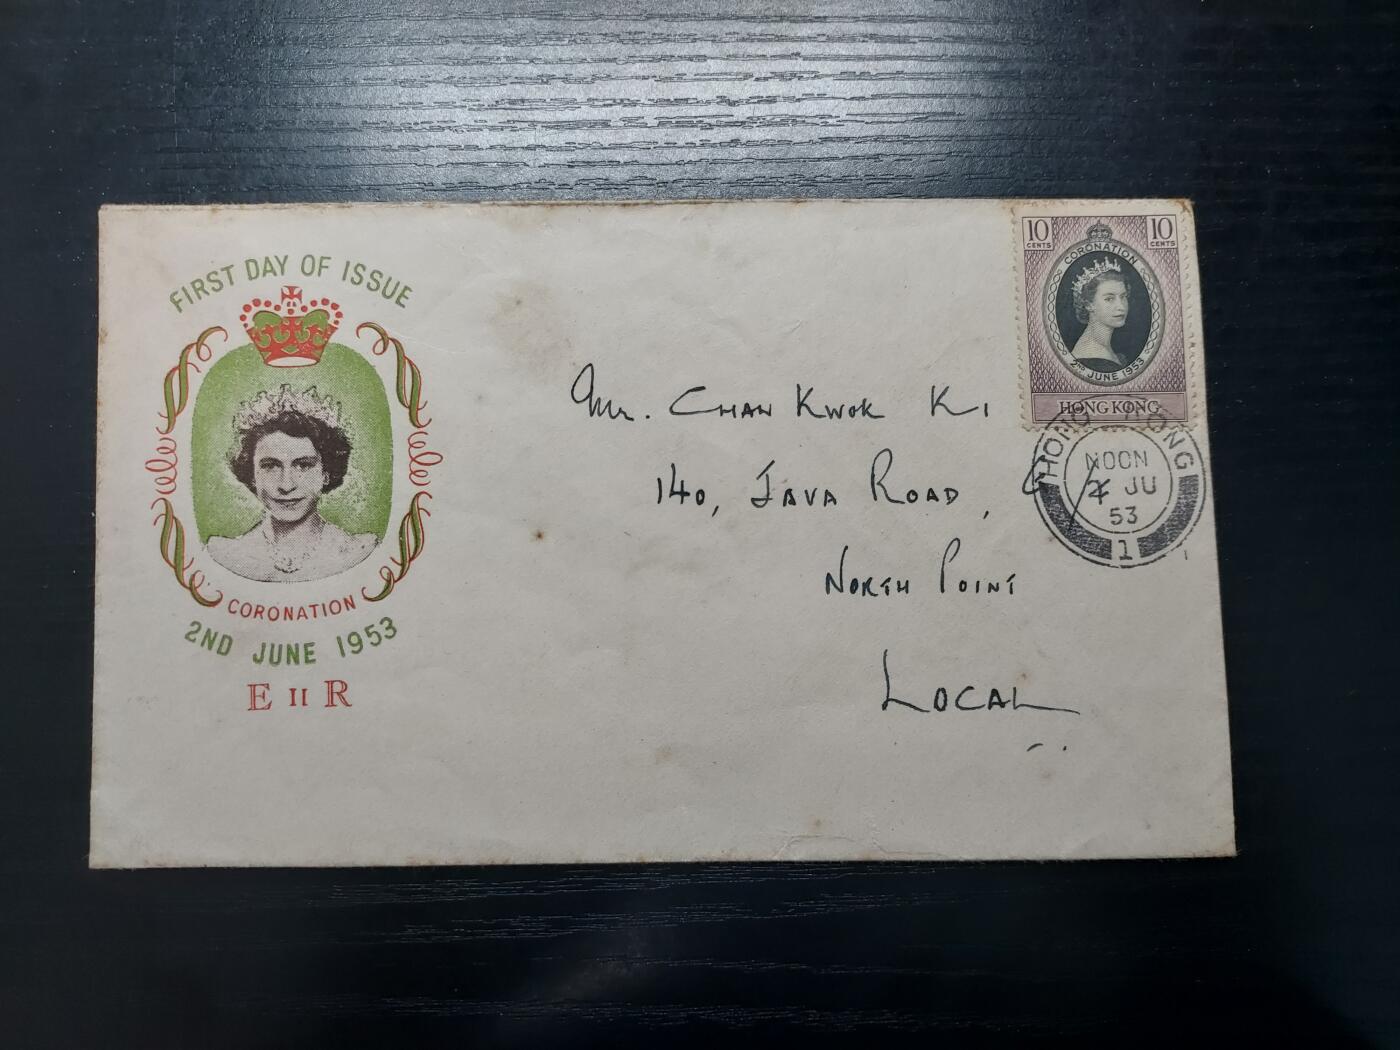 FIRST DAY OF ISSUE
CORONATION
2ND JUNE 1953
E II R
10 CENTS
10 CENTS
CORONATION
2ND JUNE 1953
HONG KONG
HONG KONG
NOON
2 JU
53
1
Mr. CHAN KWOK KI
140, JAVA ROAD,
NORTH POINT
LOCAL